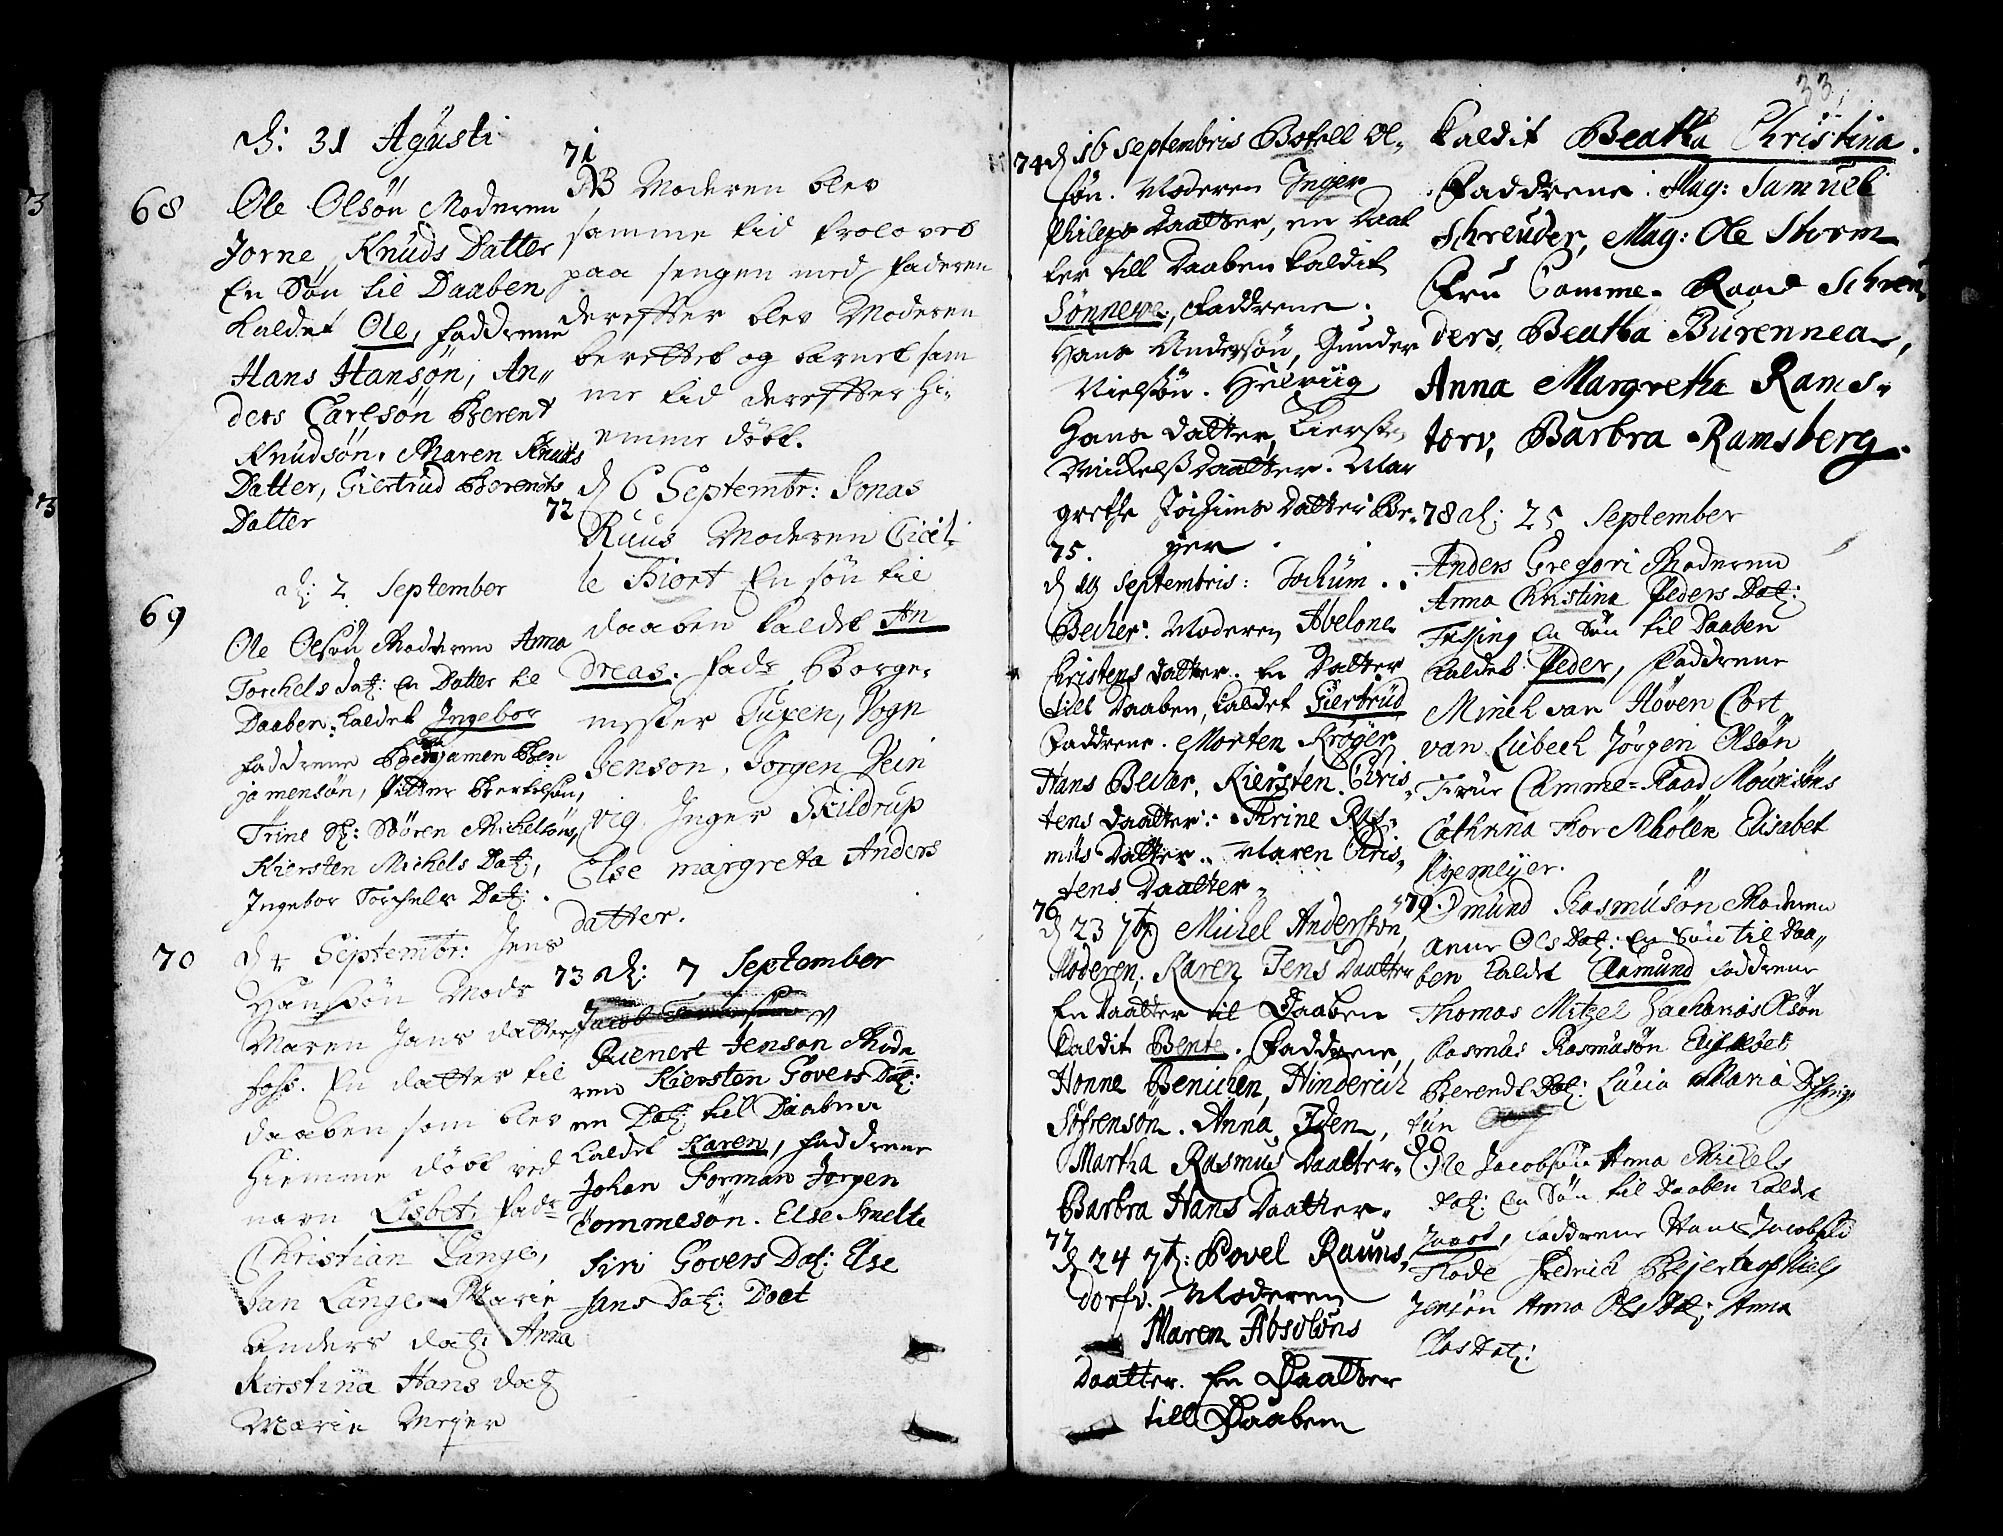 33.
d: 31 Agusti
68 Ole Olsøn Moderen
Jorne Knuds Datter
En Søn til Daaben
kaldet Ole, faddrene
Hans Hansøn, An„
ders Carlsøn Berent
Knudsøn. Maren Knuds
Datter, Giertrud Berents
Datter
d: 2 September
69
Ole Olsøn Moderen Anna
Torchels dat: En Datter til
Daaben kaldet Ingebor
faddrene Benjamen Ben
jamensøn, Pitter Bertelsøn,
Trine Sl: Søören Michelsøns,
Kiersten Michels Dat:,
Ingebor Torchels Dat:
70 d 4 Septembr: Jens
Hansøn Mods
Maren Jans datter
foss. En datter til
daaben som blev
hiemme døbt ved
navn Lisbet. fadr
Christian Lange,
Jan Lange. Marie
Anders dat: Anna
Kirstina Hans dat
Marie Meyer
71
NB Moderen blev
samme tid trolovet
paa sengen med faderen
dereffter blev Moderen
berettet og barnet sam
me tid dereffter hi„
emme døbt.
72 d 6 Septembr: Jonas
Ruus Moderen Cicil„
le Hiort En søn til
daaben kaldet An
dreas. fadr Borge„
mester Tuxen, Vogn
Jenson, Jorgen Vein
vig Inger Skildrup
Else margreta Anders
datter.
73 d: 7 September
Rienert Jenson Mode
ren Kiersten Govers Dat:
en Dat: til Daaben
kaldet Karen, faddrene
Johan Forman Jorgen
Tommesøn. Else Smelte
Siri Govers Dat: Else
Jans Dat: Doet
74 d 16 Septembris Botell Ol„
søn. Moderen Inger
Philips Daatter, en Daat
ter till Daaben kaldit
Sønneve, Faddrene:
Hans Andersøn, Gunder
Nielsøn. Helvüg
Hans Datter, Kiersten
Mickelß Daatter. Mar
grethe Jochims Datter Be„
yer
75.
d 19 Septembris: Jochum
Becher: Moderen Abelone
Christens datter. En Datter
till Daaben, kaldet Giertrüd
Faddrene. Morten Krøger
Hans Becher, Kiersten Chris„
tens Daatter: Thrine Ras„
mus Datter. Maren Chris„
tens Daatter„
76
d 23 7br Michel Andersøn,
Moderen; Karen Jens Daatter
En Daatter til Daaben
kaldit Bente. Faddrene,
Honne Benichen, Hinderich
Søfrensøn. Anna Iden,
Martha Rasmus Daatter„
Barbra Hans Daatter.
77
d 24 7b: Povel Rauns„
dorf. Moderen
Maren Absolons
Daatter. En Daatter
till Daaben
kaldit Beatha Christina.
Faddrene: Mag: Samuel
Schreuder, Mag: Ole Storm
Fru Camme- Raad Schreu„
ders, Beatha Burennea,
Anna Margretha Rams„
torv, Barbra Ramsberg.
78 d: 25 September
Anders Gregori Moderen
Anna Christina Peders Dat:
En Søn til Daaben
kaldet Peder, Faddrene
Minch van Høven Cort
van Lubech Jørgen Olsøn
Frue Camme=Raad Mouritsøns
Cathrina Thor Mhølen Elisabet
79. Omund Rasmusøn Moderen
Anne Ols Dat: En Søn til Daa„
ben kaldet Aamund Faddrene
Thomas Mitzel Zacharias Olsøn
Rasmus Rasmusøn Elisabet
Berendt Dat: Lucia Maria
80
Ole Jacobsøn Anna Michels
Dat: En Søn til Daaben kaldet
Faddrene Hans Jacobsøn
Tode Fredrich Niels
Jensøn Anna Ols Dat: Anna
Clas Dat: